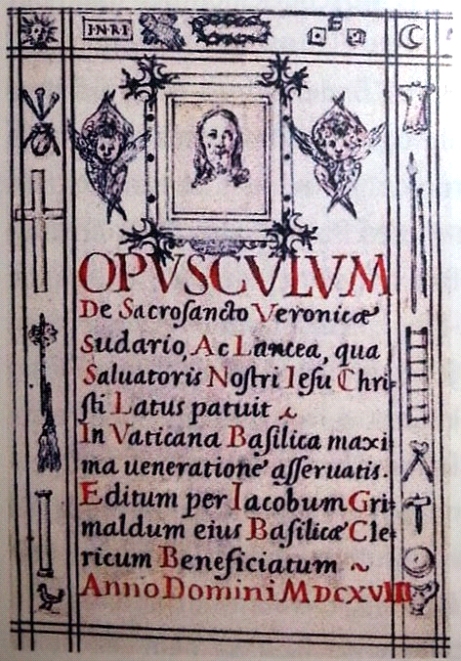 I·N·R·I
OPVSCVLVM
De Sacrosancto Veronicæ
Sudario, Ac Lancea, qua
Saluatoris Nostri Iesu Chri-
sti Latus patuit
In Vaticana Basilica maxi
ma ueneratione asseruatis.
Editum per Iacobum Gri-
maldum eius Basilicæ Cle-
ricum Beneficiatum ~
Anno Domini MDCXVIII